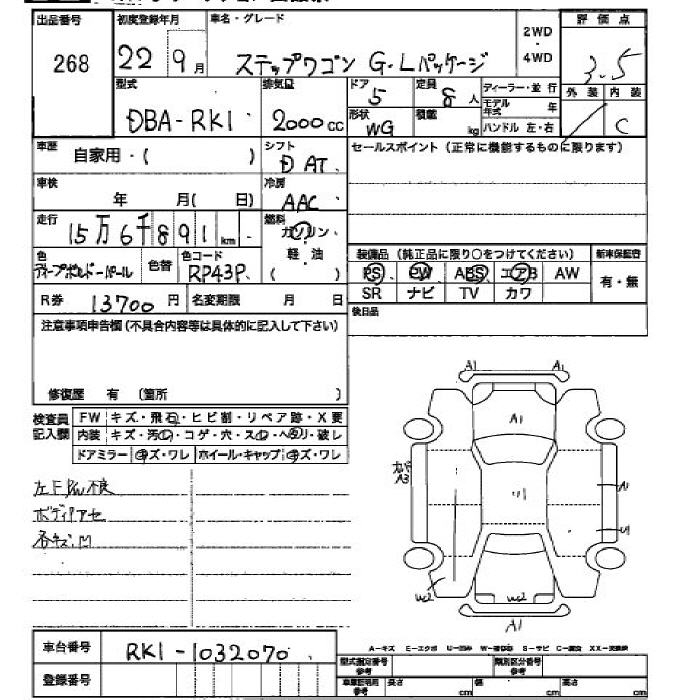 出品番号 初度登録年月 車名・グレード 2WD・4WD 評価点
268 22 9月 ステップワゴン G・Lパッケージ 3.5
型式 排気量 ドア 定員 ディーラー・並行 外装 内装
DBA-RK1 2000cc 5 8人 モデル年式 年 C
形状 積載 kg ハンドル 左・右
WG
車歴 自家用・( ) シフト セールスポイント (正常に機能するものに限ります)
D AT
車検 年 月( 日) 冷房
AAC
走行 15万6千891km 燃料 ガソリン・軽・油 ( )
色 色替 色コード 装備品 (純正品に限り○をつけてください) 新車保証書
ディープボルドーパール RP43P PS PW ABS エアB AW 有・無
SR ナビ TV カワ
R券 13700円 名変期限 月 日 後日品
注意事項申告欄 (不具合内容等は具体的に記入して下さい)
修復歴 有 (箇所 )
検査員記入欄 FW キズ・飛石・ヒビ割・リペア跡・X要
内装 キズ・汚れ・コゲ・穴・スレ・ヘタリ・破レ
ドアミラー キズ・ワレ ホイール・キャップ キズ・ワレ
左F P/W不良
ボディアセ
各キズ.凹
A1 A1
A1
A3
A1
U1
W2 W2
A1
A-キズ E-エクボ U-凹み S-サビ C-腐食 XX-交換済
車台番号 RK1-1032070
登録番号
型式指定番号 参考 類別区分番号 参考
車庫証明用 参考 長さ cm 幅 cm 高さ cm